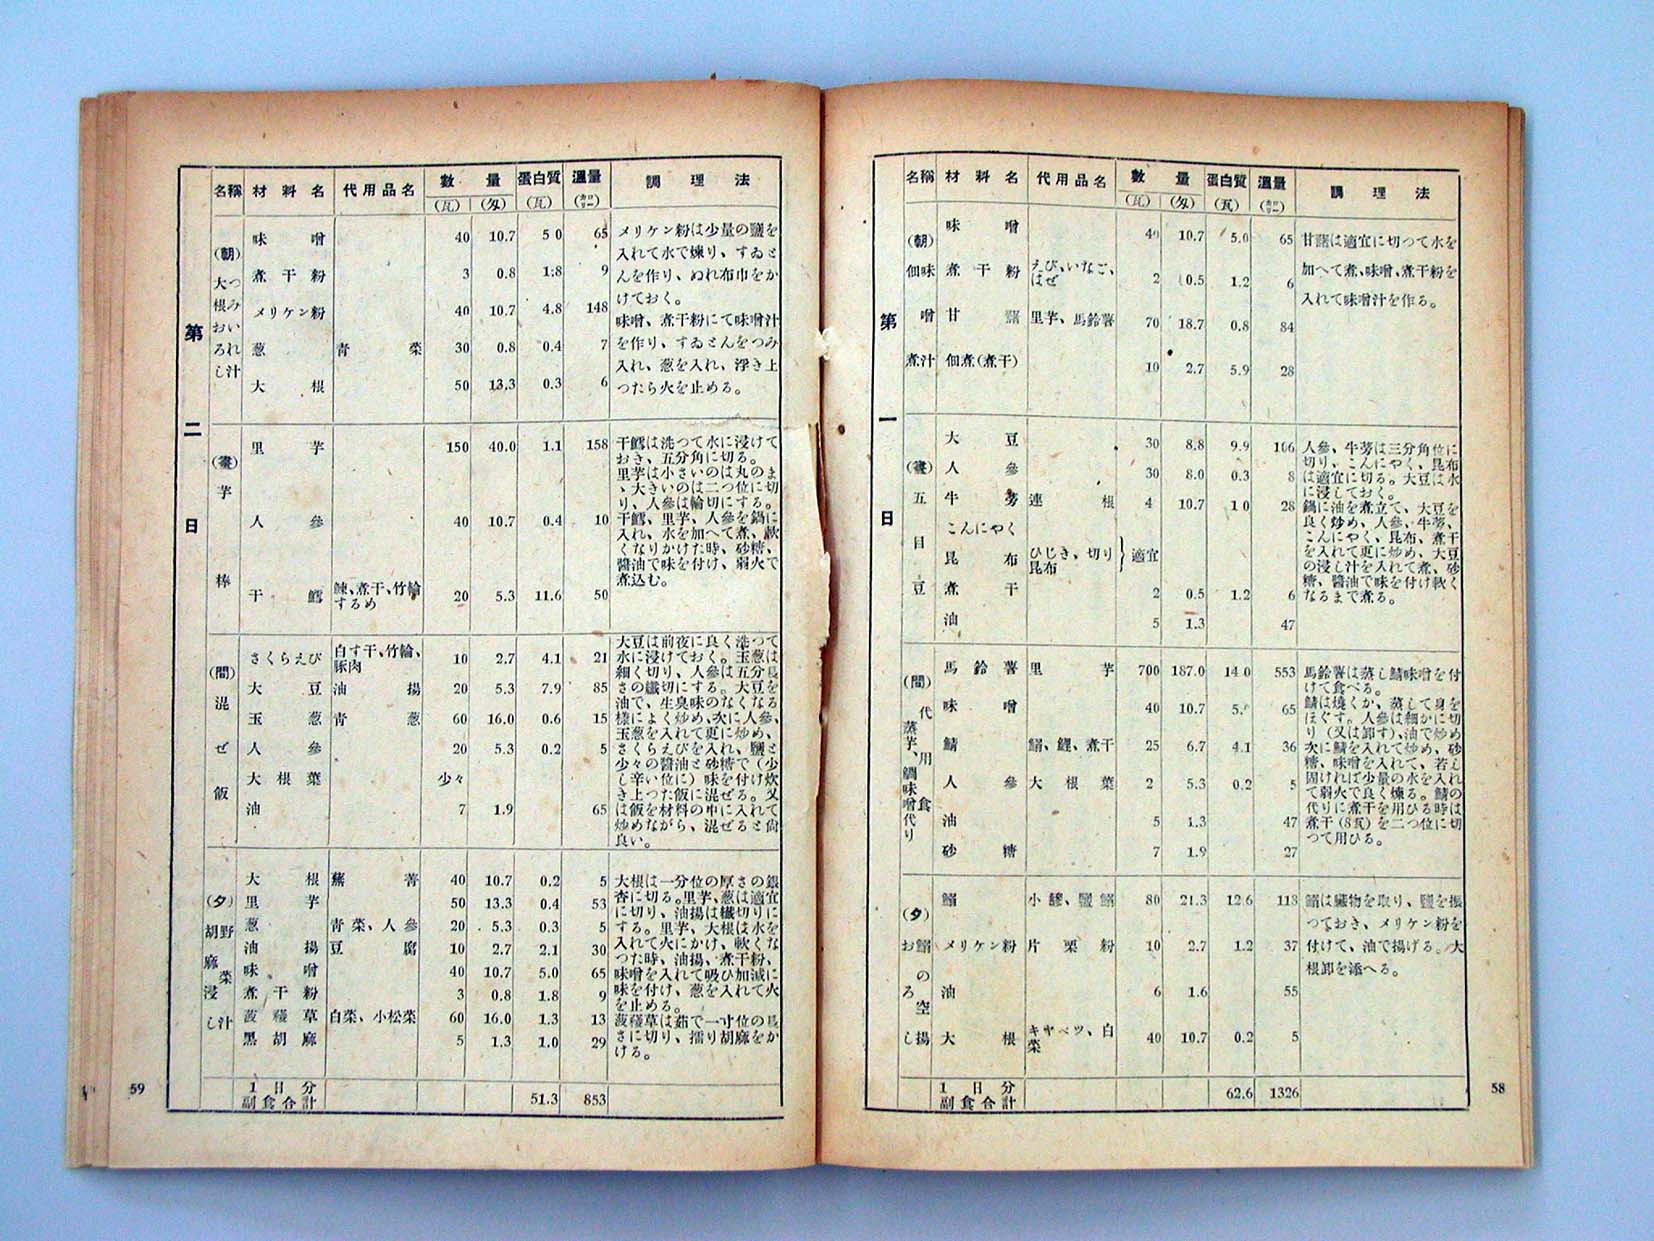 第一日
名稱 材料名 代用品名 數量 蛋白質 溫量 調理法
(瓦) (匁) (瓦) (カロリー)
(朝) 味噌汁 佃煮
味噌 40 10.7 5.0 65
煮干粉 えび、いなご、はぜ 2 0.5 1.2 6
甘藷 里芋、馬鈴薯 70 18.7 0.8 84
佃煮(煮干) 10 2.7 5.9 28
甘藷は適宜に切つて水を
加へて煮、味噌、煮干粉を
入れて味噌汁を作る。
(晝) 五目豆
大豆 30 8.8 9.9 106
人參 30 8.0 0.3 8
牛蒡 連根 4 10.7 1 0 28
こんにやく
昆布 ひじき、切り昆布 適宜
煮干 2 0.5 1.2 6
油 5 1.3 47
人參、牛蒡は三分角位に
切り、こんにやく、昆布
は適宜に切る。大豆は水
に浸しておく。
鍋に油を煮立て、大豆を
良く炒め、人參、牛蒡、
こんにやく、昆布、煮干
を入れて更に炒め、大豆
の浸し汁を入れて煮、砂
糖、醬油で味を付け軟く
なるまで煮る。
(間) 代用食 蒸芋、鯛味噌代り
馬鈴薯 里芋 700 187.0 14 0 553
味噌 40 10.7 5. 65
鯖 鰯、鰹、煮干 25 6.7 4.1 36
人參 大根葉 2 5.3 0.2 5
油 5 1.3 47
砂糖 7 1.9 27
馬鈴薯は蒸し鯖味噌を付
けて食べる。
鯖は燒くか、蒸して身を
ほぐす。人參は細かに切
り(又は卸す)、油で炒め
次に鯖を入れて炒め、砂
糖、味噌を入れて、若し
固ければ少量の水を入れ
て弱火で良く煉る。鯖の
代りに煮干を用ひる時は
煮干(8瓦)を二つ位に切
つて用ひる。
(夕) 鰯の空揚 おろし
鰯 小鯵、鹽鰯 80 21.3 12.6 113
メリケン粉 片栗粉 10 2.7 1.2 37
油 6 1.6 55
大根 キヤベツ、白菜 40 10.7 0.2 5
鰯は臟物を取り、鹽を振
つておき、メリケン粉を
付けて、油で揚げる。大
根卸を添へる。
1日分副食合計 62.6 1326
58
第二日
名稱 材料名 代用品名 數量 蛋白質 溫量 調理法
(瓦) (匁) (瓦) (カロリー)
(朝) つみいれ汁 大根おろし
味噌 40 10.7 5 0 65
煮干粉 3 0.8 1.8 9
メリケン粉 40 10.7 4.8 148
葱 青菜 30 0.8 0.4 7
大根 50 13.3 0.3 6
メリケン粉は少量の鹽を
入れて水で煉り、すゐと
んを作り、ぬれ布巾をか
けておく。
味噌、煮干粉にて味噌汁
を作り、すゐとんをつみ
入れ、葱を入れ、浮き上
つたら火を止める。
(晝) 芋棒
里芋 150 40.0 1.1 158
人參 40 10.7 0.4 10
干鱈 鰊、煮干、竹輪するめ 20 5.3 11.6 50
干鱈は洗つて水に浸けて
おき、五分角に切る。
里芋は小さいのは丸のま
ゝ、大きいのは二つ位に切
り、人參は輪切にする。
干鱈、里芋、人參を鍋に
入れ、水を加へて煮、軟
くなりかけた時、砂糖、
醬油で味を付け、弱火で
煮込む。
(間) 混ぜ飯
さくらえび 白す干、竹輪、豚肉 10 2.7 4.1 21
大豆 油揚 20 5.3 7.9 85
玉葱 青葱 60 16.0 0.6 15
人參 20 5.3 0.2 5
大根葉 少々
油 7 1.9 65
大豆は前夜に良く洗つて
水に浸けておく。玉葱は
細く切り、人參は五分長
さの纖切にする。大豆を
油で、生臭味のなくなる
樣によく炒め、次に人參、
玉葱を入れて更に炒め、
さくらえびを入れ、鹽と
少々の醬油と砂糖で(少
し辛い位に)味を付け炊
き上つた飯に混ぜる。又
は飯を材料の中に入れて
炒めながら、混ぜると尙
良い。
(夕) 野菜汁 胡麻浸し
大根 蕪菁 40 10.7 0.2 5
里芋 50 13.3 0.4 53
葱 青菜、人參 20 5.3 0.3 5
油揚 豆腐 10 2.7 2.1 30
味噌 40 10.7 5.0 65
煮干粉 3 0.8 1.8 9
菠薐草 白菜、小松菜 60 16.0 1.3 13
黑胡麻 5 1.3 1.0 29
大根は一分位の厚さの銀
杏に切る。里芋、葱は適宜
に切り、油揚は纖切りに
する。里芋、大根は水を
入れて火にかけ、軟くな
つた時、油揚、煮干粉、
味噌を入れて吸ひ加減に
味を付け、葱を入れて火
を止める。
菠薐草は茹で一寸位の長
さに切り、擂り胡麻をか
ける。
1日分副食合計 51.3 853
59